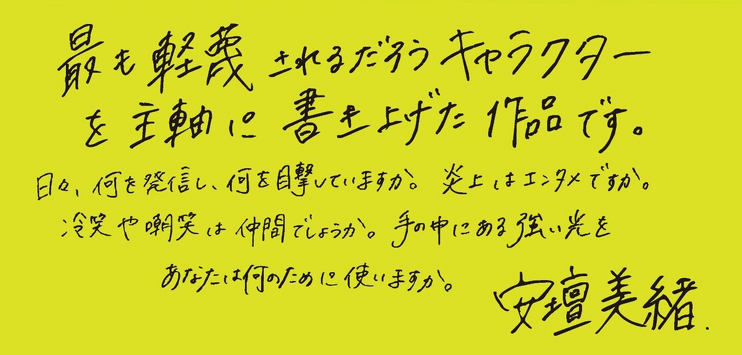 最も軽蔑されるだろうキャラクター
を主軸に書き上げた作品です。
日々、何を発信し、何を目撃していますか。炎上はエンタメですか。
冷笑や嘲笑は仲間でしょうか。手の中にある強い光を
あなたは何のために使いますか。
安壇美緒.